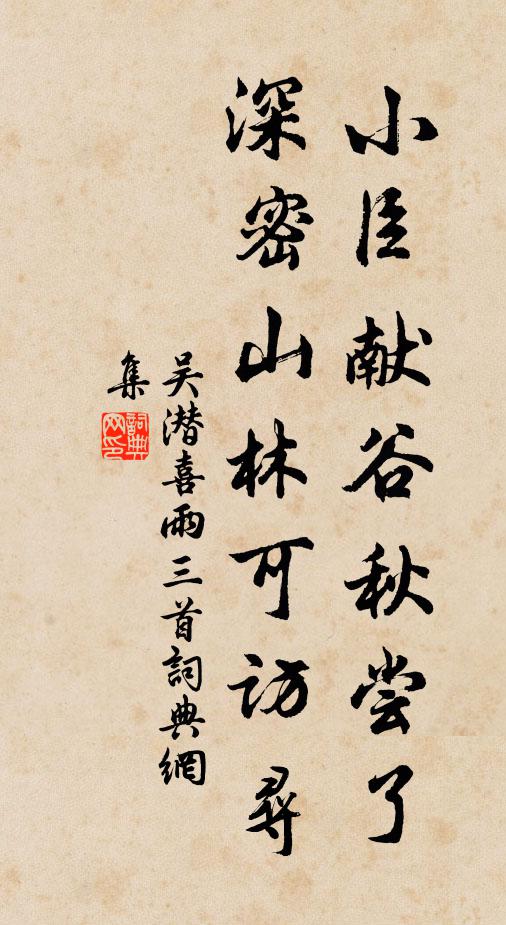 小臣献谷秋尝了
深密山林可访尋
吴潜喜雨三首詞典網
集
詞典网印